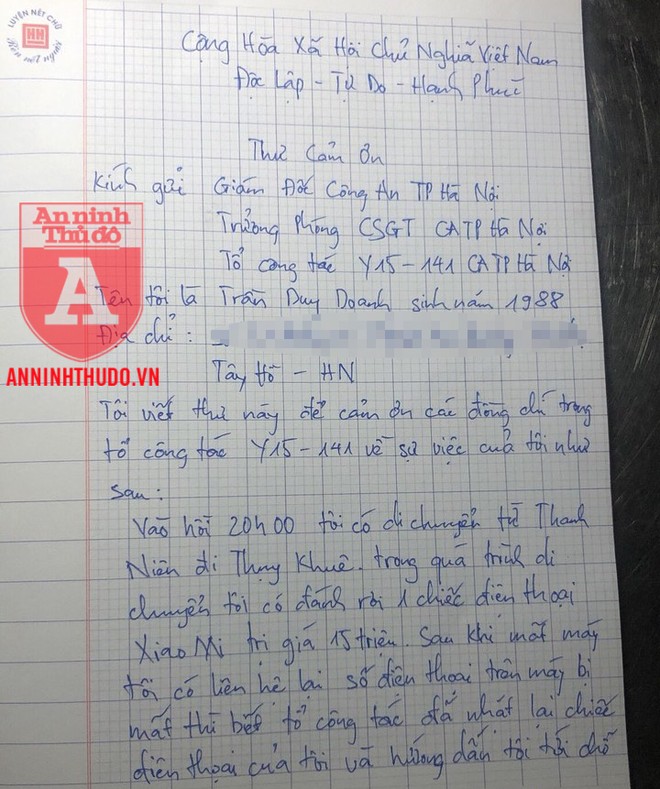 LUYỆN NÉT CHỮ
HH
Rèn nết người
Cộng Hòa Xã Hội Chủ Nghĩa Việt Nam
Độc Lập - Tự Do - Hạnh Phúc
Thư Cảm Ơn
Kính gửi Giám Đốc Công An TP Hà Nội
Trưởng Phòng CSGT CATP Hà Nội
Tổ công tác Y15-141 CATP Hà Nội
An ninh
Thủ đô
A
ANNINHTHUDO.VN
Tên tôi là Trần Duy Doanh sinh năm 1988
Địa chỉ :
Tây Hồ - HN
Tôi viết thư này để cảm ơn các đồng chí trong
tổ công tác Y15-141 về sự việc của tôi như
sau :
Vào hồi 20h00 tôi có di chuyển từ Thanh
Niên đi Thụy Khuê. trong quá trình di
chuyển tôi có đánh rơi 1 chiếc điện thoại
XiaoMi trị giá 15 triệu. Sau khi mất máy
tôi có liên hệ lại số điện thoại trên máy bị
mất thì biết tổ công tác đã nhặt lại chiếc
điện thoại của tôi và hướng dẫn tôi tới chỗ